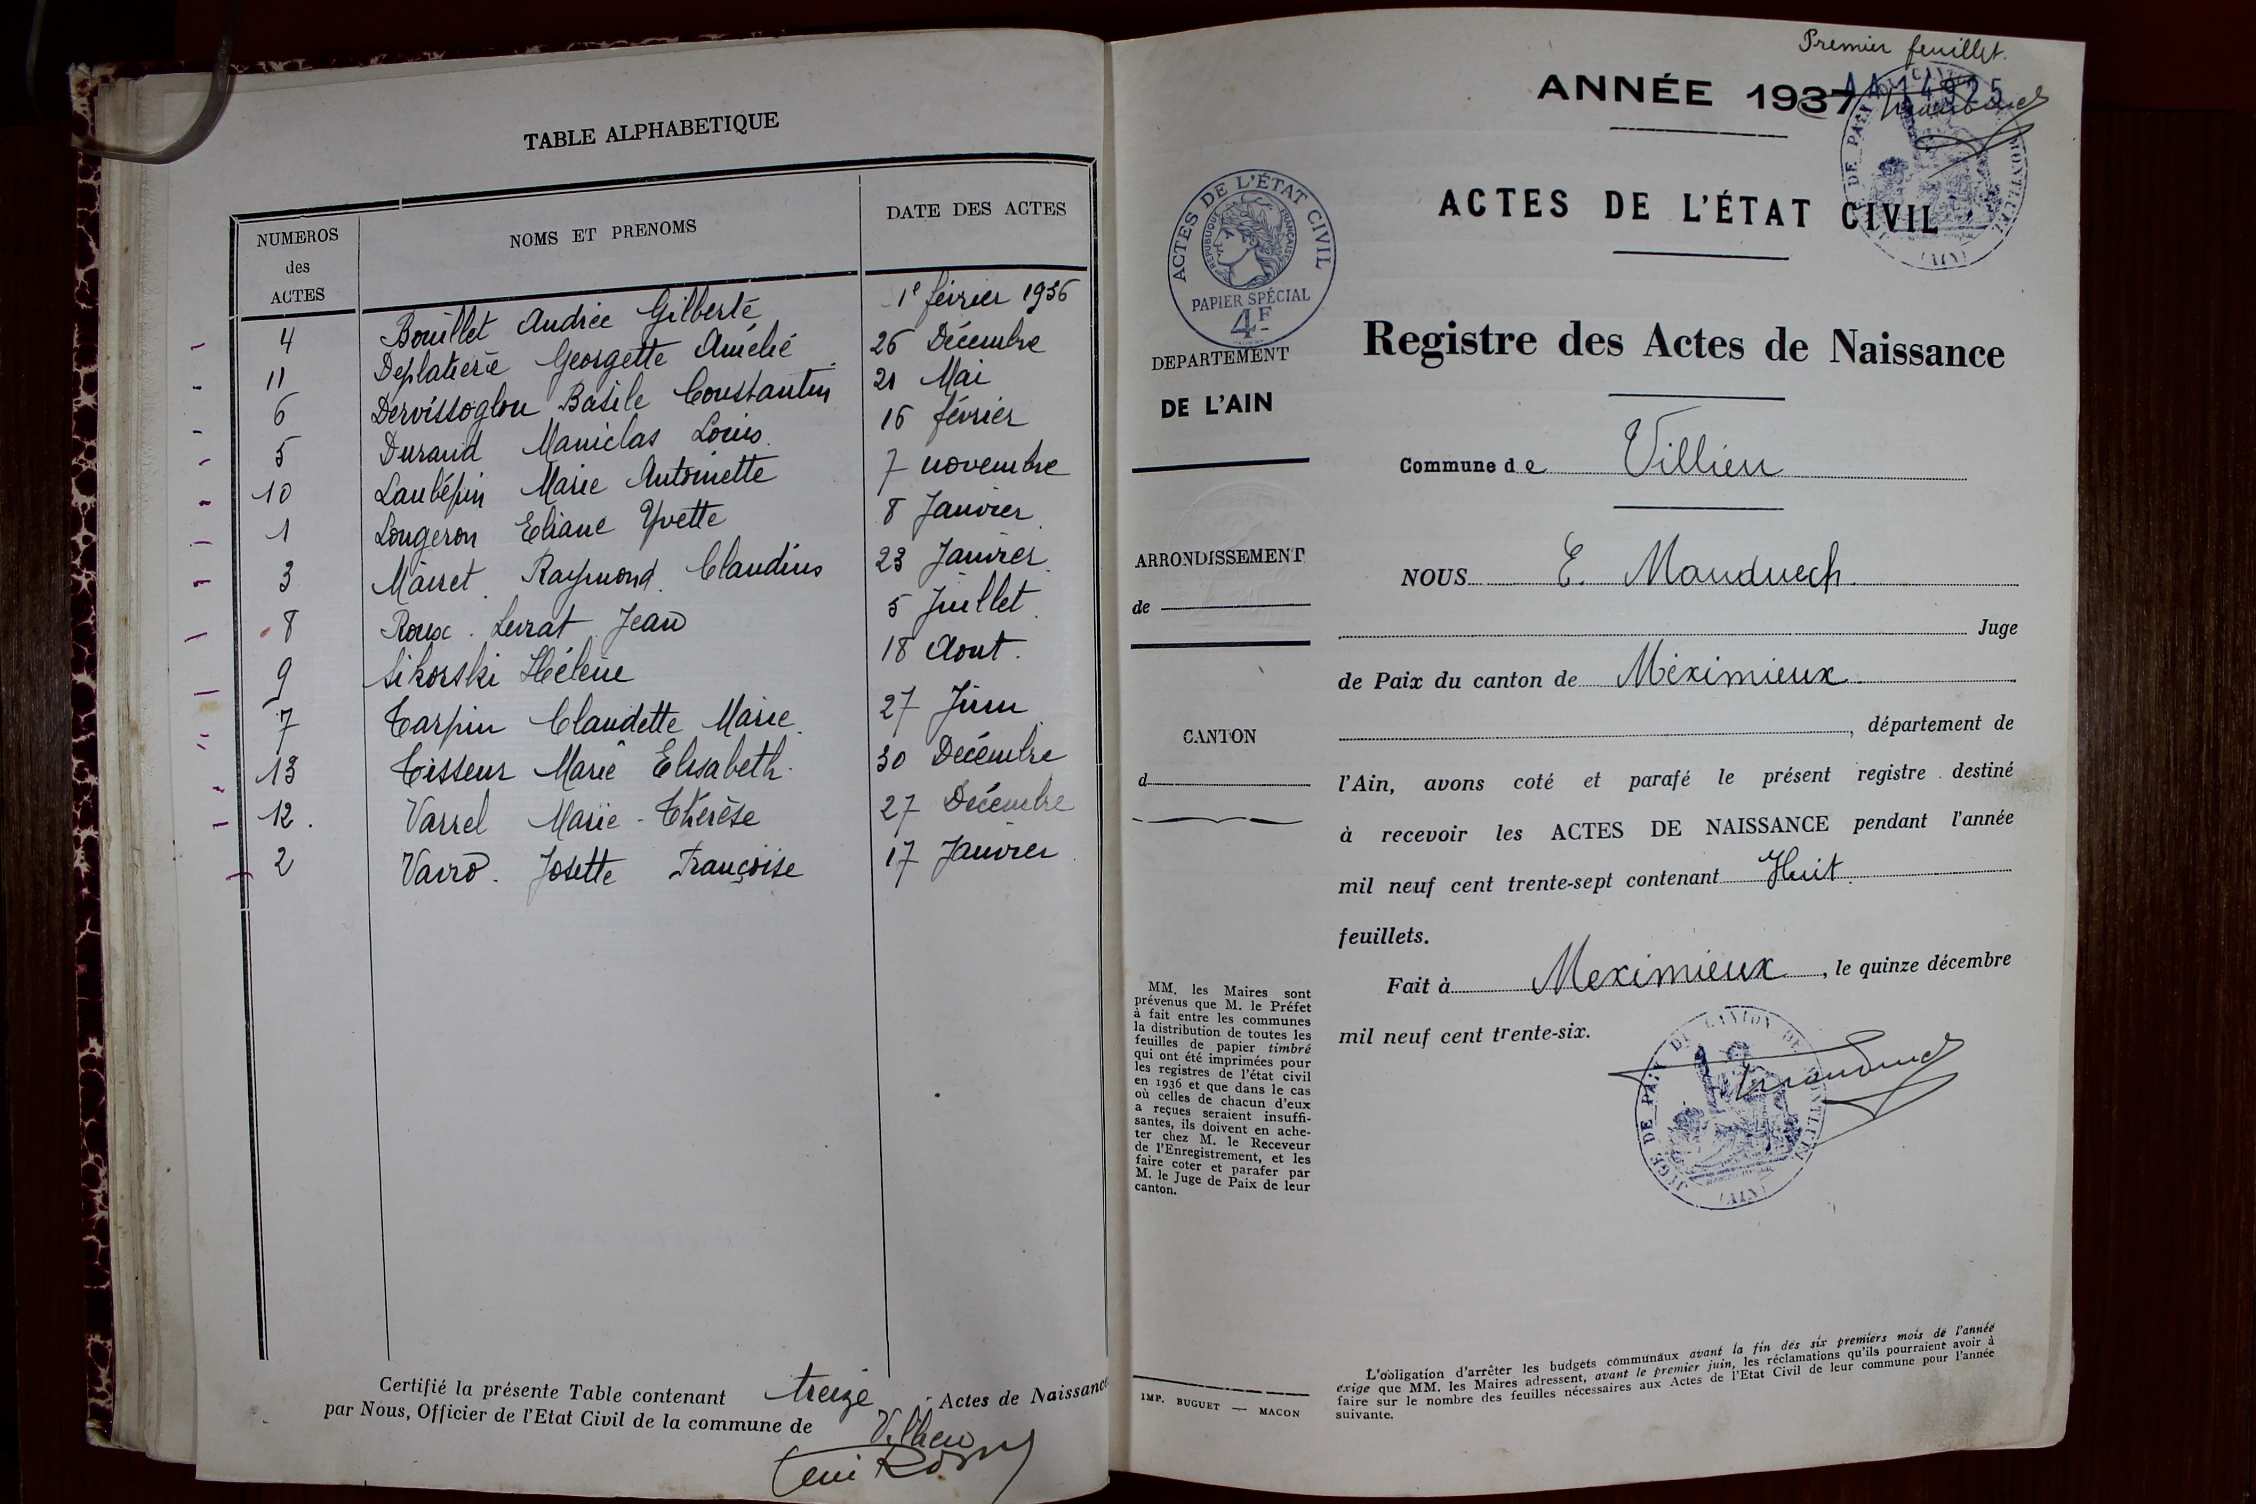 TABLE ALPHABETIQUE
NUMEROS des ACTES
NOMS ET PRENOMS
DATE DES ACTES
4 Bouillet Andrée Gilberte 1e février 1936
11 Deplatière Georgette Amélie 26 Décembre
6 Dervissoglou Basile Constantin 21 Mai
5 Durand Maniclas Louis 16 février
10 Laubépin Marie Antoinette 7 novembre
1 Lougeron Eliane Yvette 8 Janvier
3 Mairet Raymond Claudius 23 Janvier
8 Roux. Levrat Jean 5 Juillet
9 Sikorski Hélène 18 Aout.
7 Carpin Claudette Marie. 27 Juin
13 Tisseur Marie Elisabeth. 30 Décembre
12. Varrel Marie-Thérèse 27 Décembre
2 Vairo. Josette Françoise 17 Janvier
Certifié la présente Table contenant treize Actes de Naissance
par Nous, Officier de l'Etat Civil de la commune de Villieu
Premier feuillet.
ANNÉE 1937
AA 14925
ACTES DE L'ÉTAT CIVIL
ACTES DE L'ÉTAT CIVIL
REPUBLIQUE FRANÇAISE
PAPIER SPÉCIAL
4F
JUGE DE PAIX DU CANTON DE MONTLUEL
(AIN)
Registre des Actes de Naissance
DEPARTEMENT
DE L'AIN
Commune de Villieu
ARRONDISSEMENT
de
NOUS E. Manduech
Juge
de Paix du canton de Méximieux
CANTON
d
, département de
l'Ain, avons coté et parafé le présent registre destiné
à recevoir les ACTES DE NAISSANCE pendant l'année
mil neuf cent trente-sept contenant Huit
feuillets.
Fait à Meximieux, le quinze décembre
mil neuf cent trente-six.
JUGE DE PAIX DU CANTON DE MONTLUEL
(AIN)
MM. les Maires sont
prévenus que M. le Préfet
à fait entre les communes
la distribution de toutes les
feuilles de papier timbré
qui ont été imprimées pour
les registres de l'état civil
en 1936 et que dans le cas
où celles de chacun d'eux
a reçues seraient insuffi-
santes, ils doivent en ache-
ter chez M. le Receveur
de l'Enregistrement, et les
faire coter et parafer par
M. le Juge de Paix de leur
canton.
IMP. BUGUET — MACON
L'obligation d'arrêter les budgets communaux avant la fin des six premiers mois de l'année
exige que MM. les Maires adressent, avant le premier juin, les réclamations qu'ils pourraient avoir à
faire sur le nombre des feuilles nécessaires aux Actes de l'Etat Civil de leur commune pour l'année
suivante.